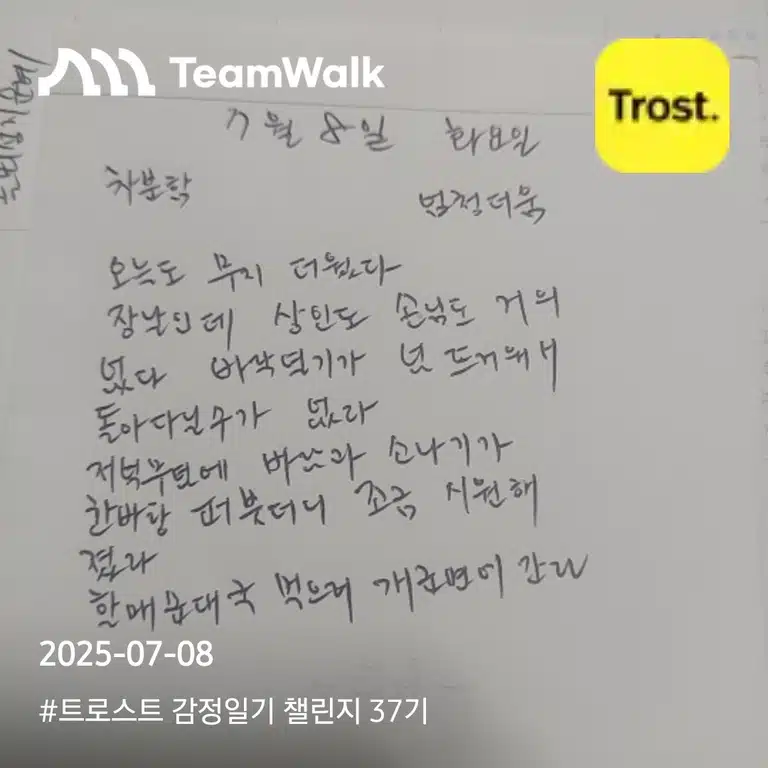 TeamWalk
Trost.
7월 8일 화요일
차분함
오늘도 무지 더웠다
장날인데 상인도 손님도 거의
없다 바닥열기가 넘 뜨거워서
돌아다닐수가 없다
저녁무렵에 바람과 소나기가
한바탕 퍼붓더니 조금 시원해
졌다
할매순대국 먹으러 개군면에 간다
2025-07-08
#트로스트 감정일기 챌린지 37기